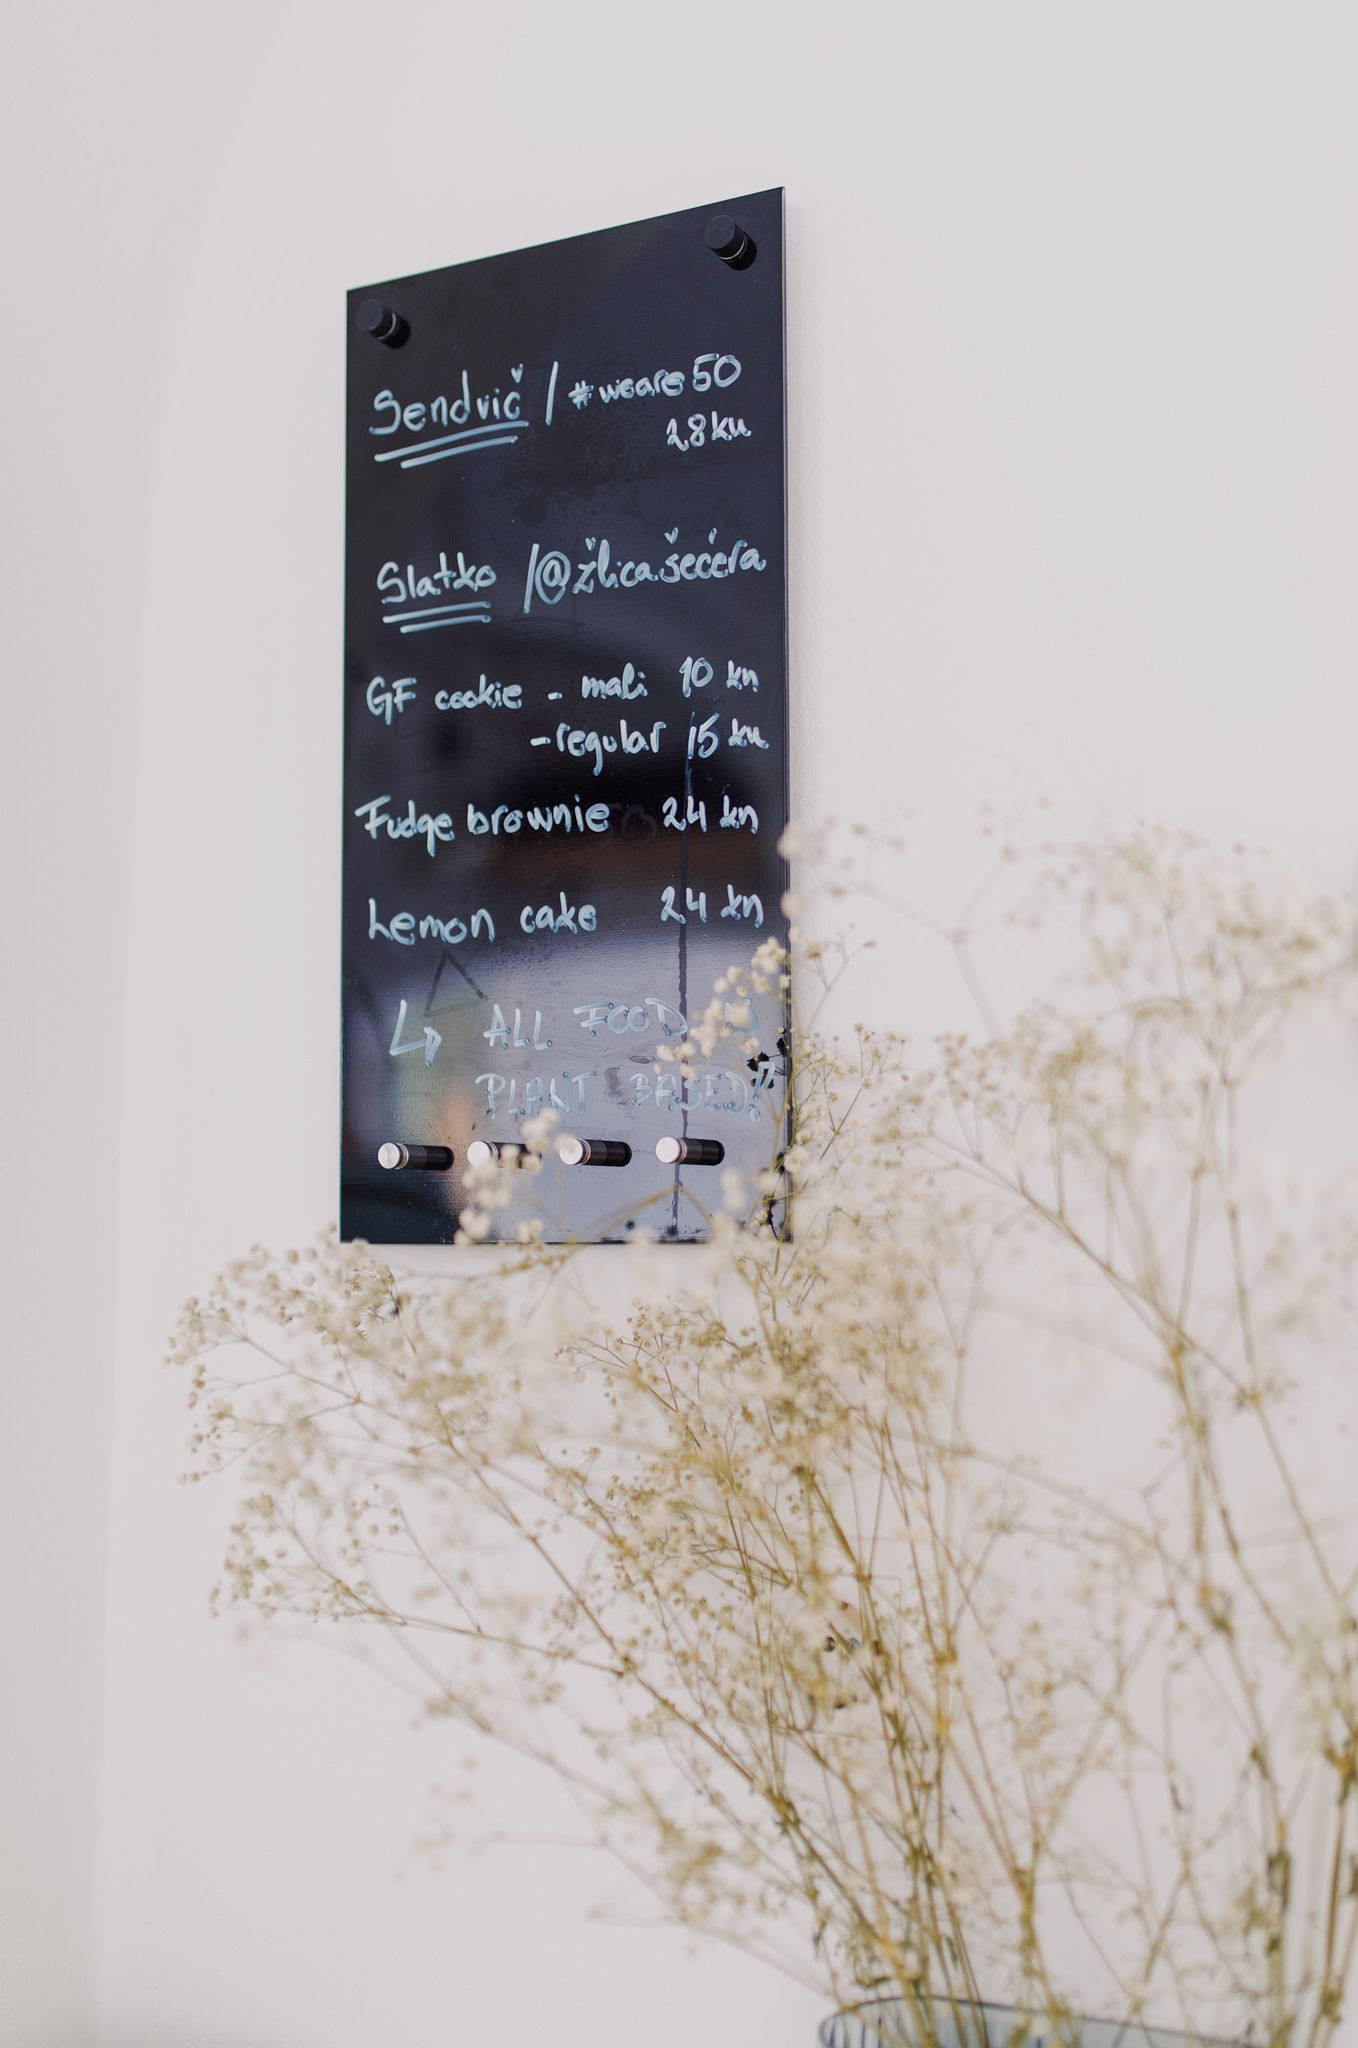 Sendvič / #weare50
28 kn
Slatko /@žlica.šećera
GF cookie - mali 10 kn
- regular 15 kn
Fudge brownie 24 kn
Lemon cake 24 kn
↳ ALL FOOD IS
PLANT BASED!